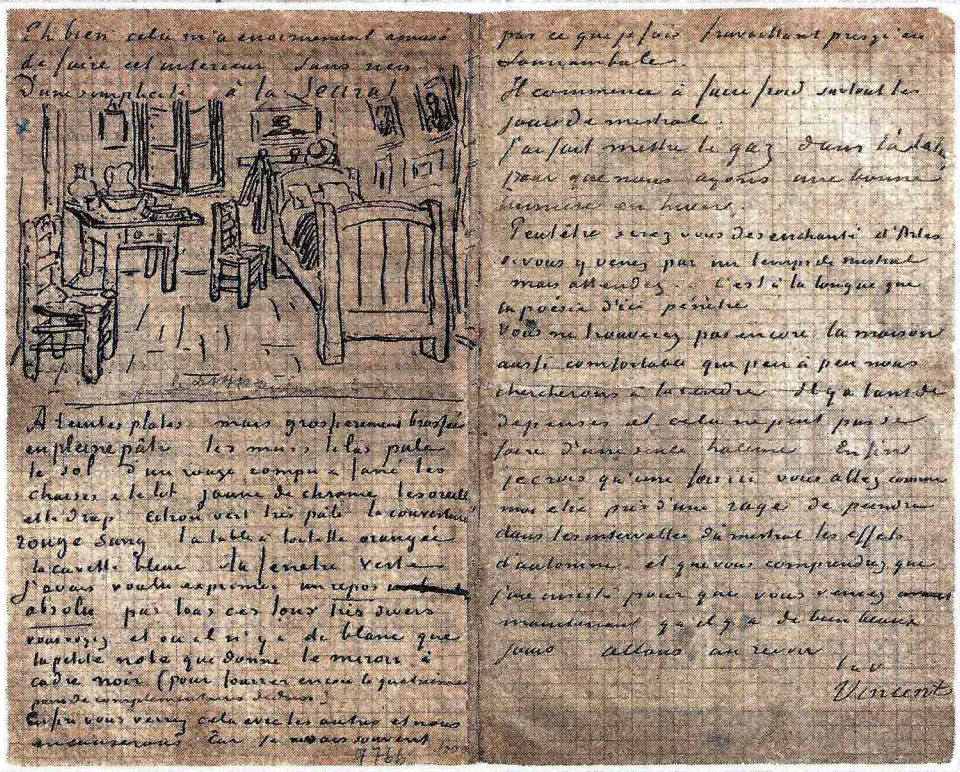 Eh bien cela m'a enormement amusé
de faire cet interieur sans rien
D'une simplicité à la Seurat
A teintes plates mais grossierement brossées
en pleine pâte les murs lilas pale
le sol d'un rouge rompu & fané les
chaises & le lit jaune de chrome les oreillers
et le drap citron vert très pale la couverture
rouge sang la table à toilette orangée
la cuvette bleue la fenetre verte
J'avais voulu exprimer un repos
absolu par tous ces tons très divers
vous voyez et ou il n'y a de blanc que
la petite note que donne le miroir à
cadre noir (pour fourrer encore la quatrieme
paire de complementaires dedans)
Enfin vous verrez cela avec les autres et nous
en causerons car je ne sais souvent
par ce que je fais travaillant presqu'en
somnambule.
Il commence à faire froid surtout les
jours de mistral.
J'ai fait mettre le gaz dans
pour que nous ayons une bonne
lumière en hiver.
Peutêtre serez vous desenchanté d'Arles
si vous y venez par un temps de mistral
mais attendez.. C'est à la longue que
la poésie d'ici pénètre
Vous ne trouverez pas encore la maison
aussi comfortable que peu à peu nous
chercherons à la rendre Il y a tant de
depenses et cela ne peut pas se
faire d'une seule haleine Enfin
je crois qu'une fois ici vous allez comme
moi etre pris d'une rage de peindre
dans les intervalles du mistral les effets
d'automne. et que vous comprendrez que
j'aie insisté pour que vous veniez
maintenant qu'il y a de bien beaux
jours allons au revoir
t.a.v
Vincent